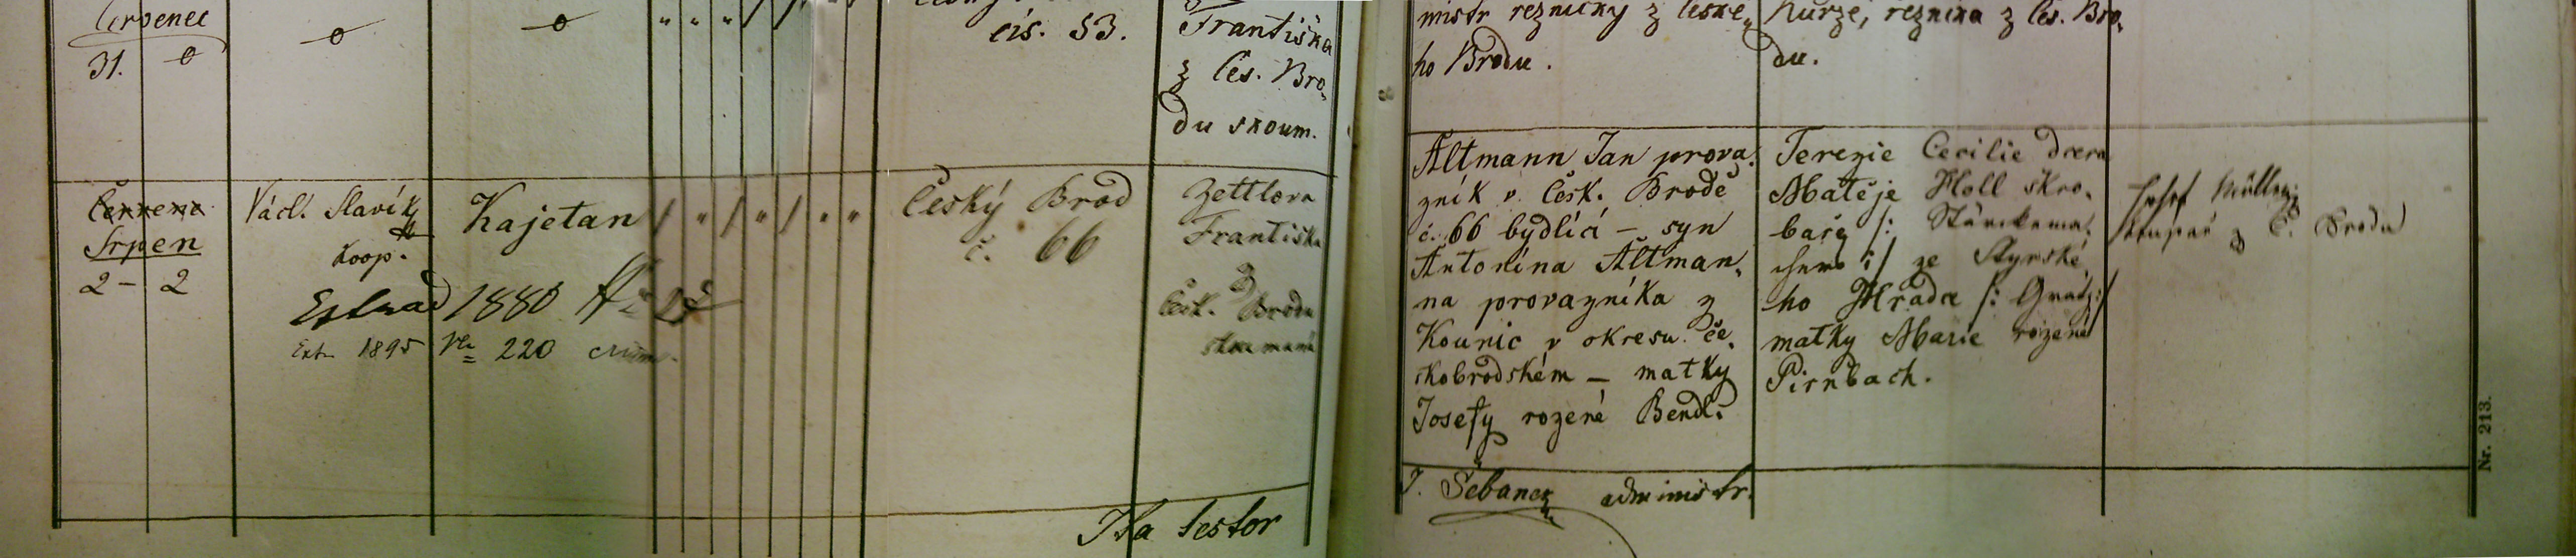 Červenec
31.
čís. 53.
Františka
z Čes. Bro,
du skoum.
mistr řeznický z České,
ho Brodu.
Kurze, řezníka z Čes. Bro,
du.
Červene
Srpen
2 - 2
Václ. Slavík
koop.
Kajetan
Český Brod
č. 66
Zettlova
Františka
z
Česk. Brodu
zkoumaná
Extrad 1880
Ext 1895 No 220
Altmann Jan prova,
zník v Česk. Brodě
č. 66 bydlící – syn
Antonína Altman,
na provazníka z
Kounic v okresu če,
skobrodském – matky
Josefy rozené Bendl.
Terezie Cecilie dcera
Matěje Holl škro,
baře /: Stärkema,
cher :/ ze Štyrské,
ho Hradce /: Gratz :/
matky Marie rozené
Pirnbach.
Josef Müller
z Č. Brodu
Ita testor
J. Šebanek administr.
Nr. 213.